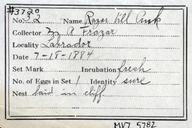 #3720
No. 32 Name Razor bill Auk
Collector M A Frazar
Locality Labrador
Date 7-18-1884
Set Mark Incubation fresh
No. of Eggs in Set 1 Identity sure
Nest laid in cliff
MVZ 5782